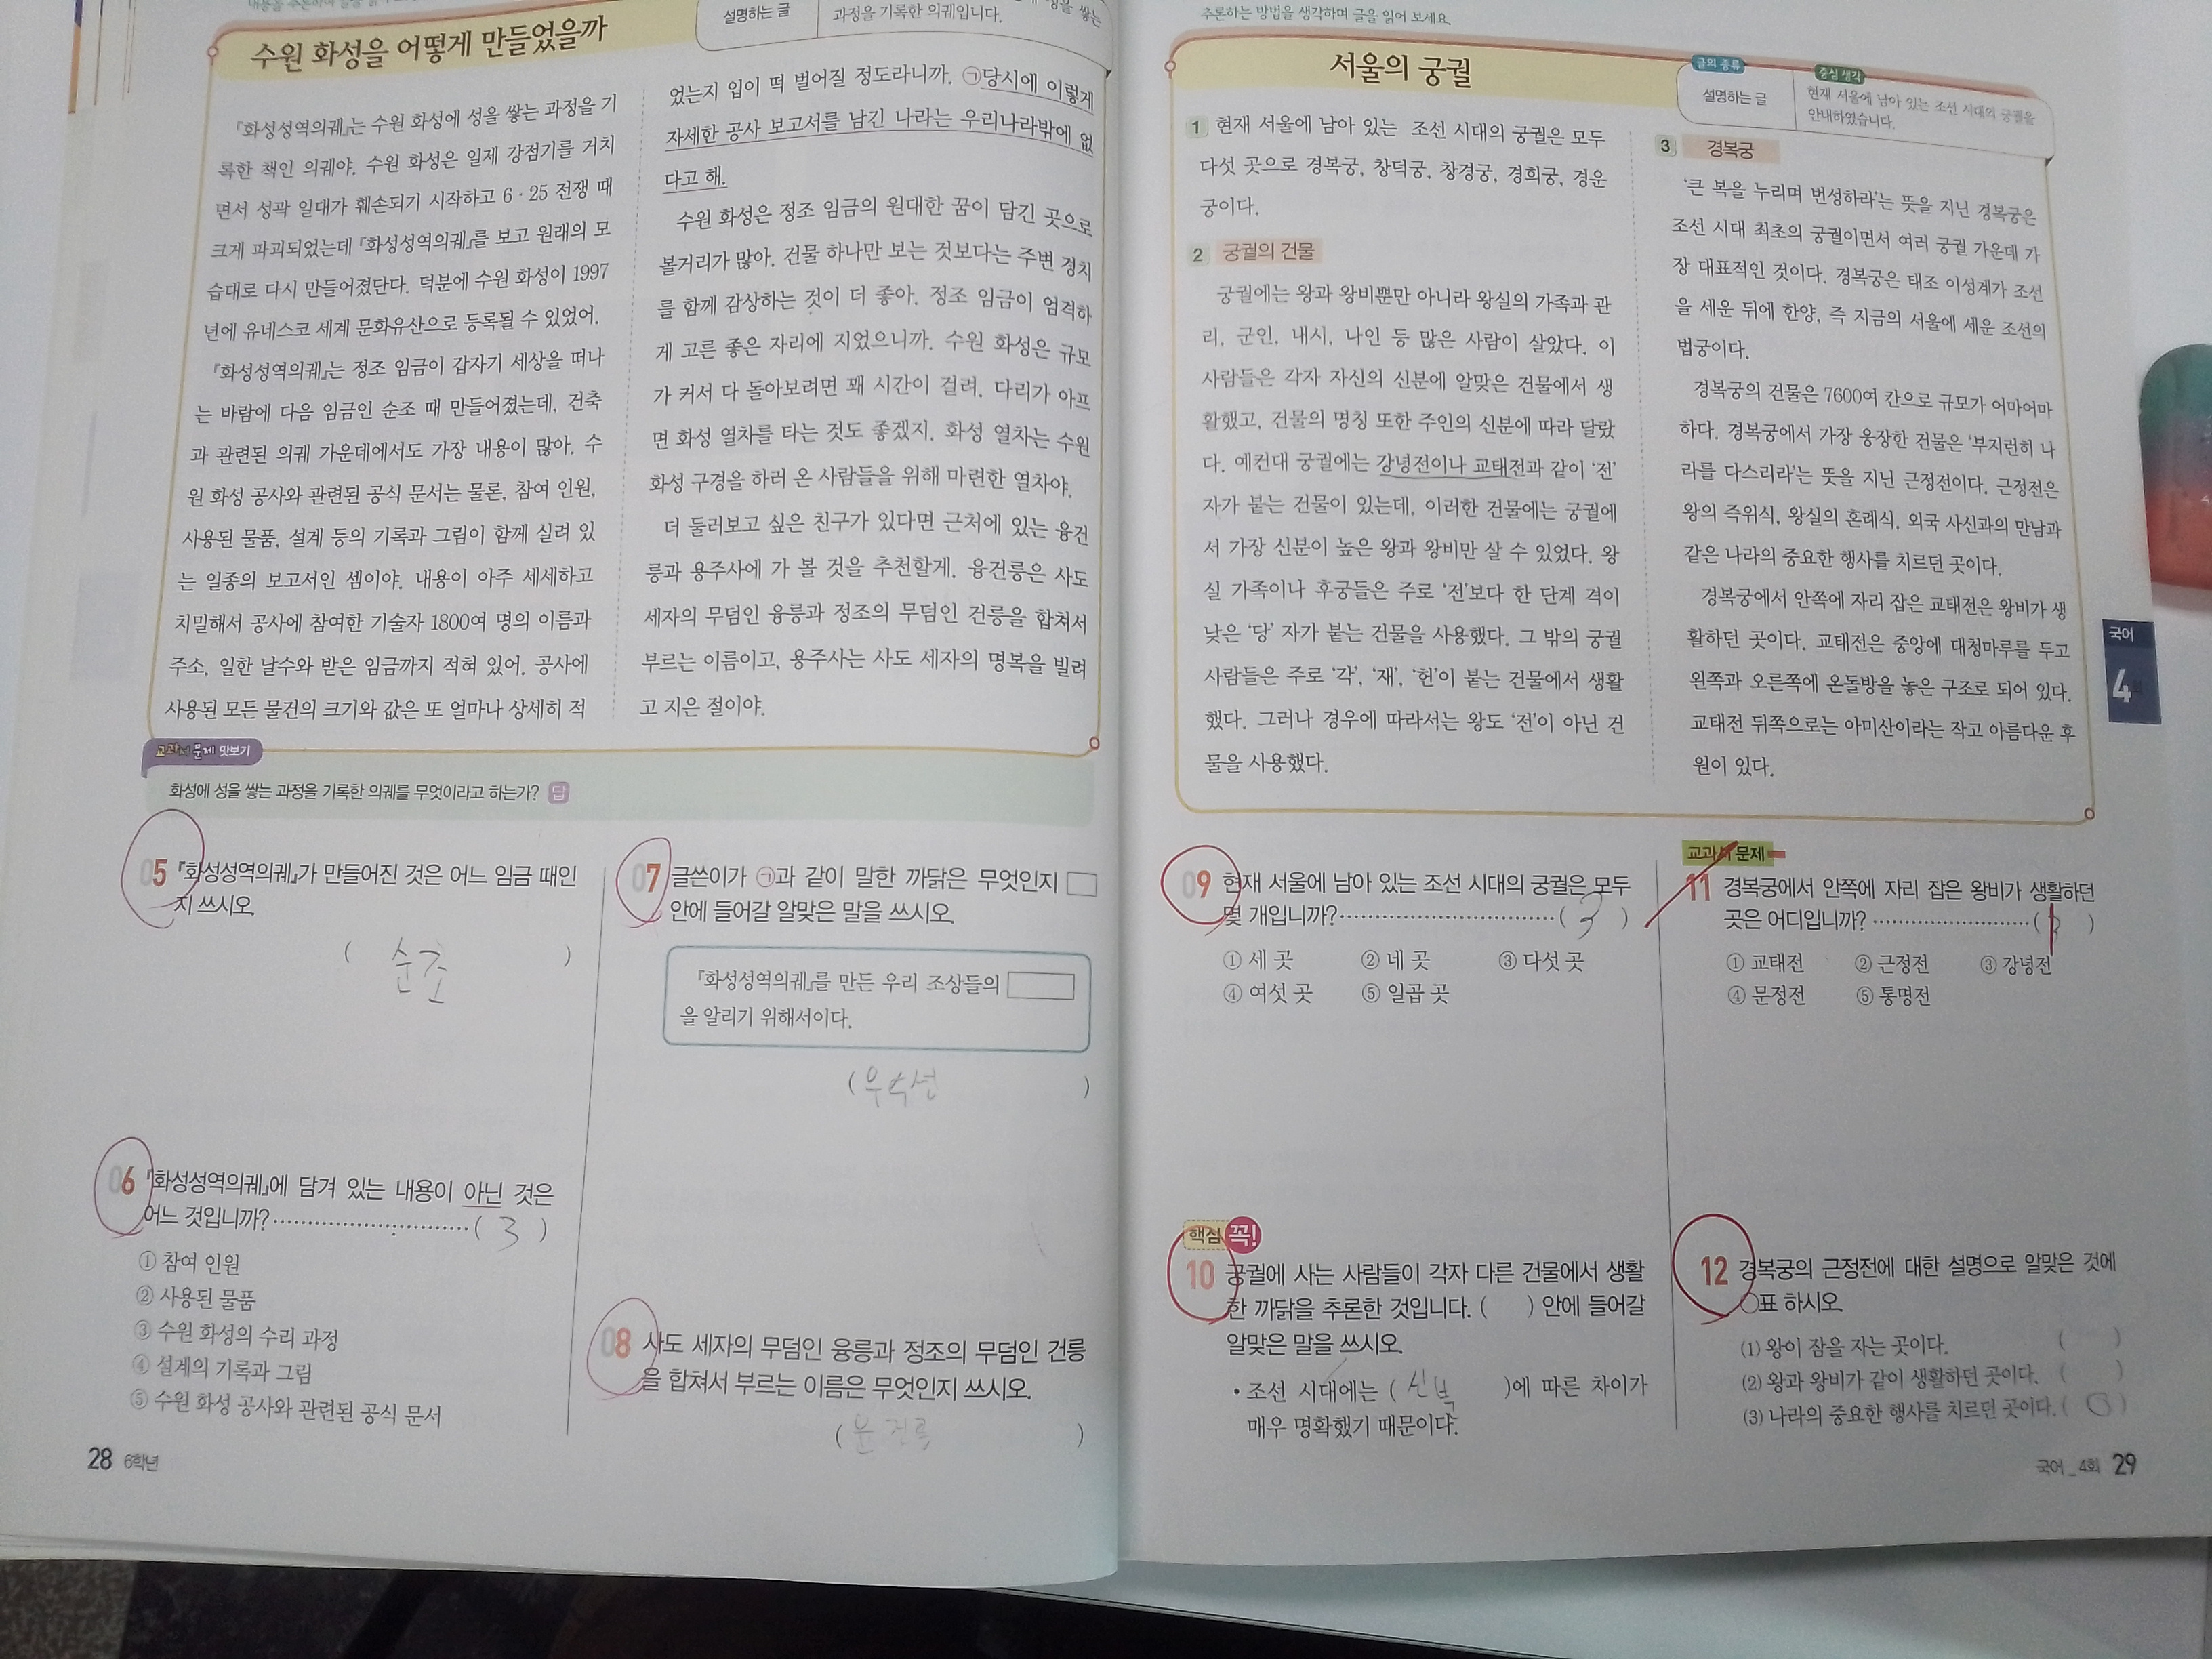 수원 화성을 어떻게 만들었을까
설명하는 글
과정을 기록한 의궤입니다.
『화성성역의궤』는 수원 화성에 성을 쌓는 과정을 기
록한 책인 의궤야. 수원 화성은 일제 강점기를 거치
면서 성곽 일대가 훼손되기 시작하고 6·25 전쟁 때
크게 파괴되었는데 『화성성역의궤』를 보고 원래의 모
습대로 다시 만들어졌단다. 덕분에 수원 화성이 1997
년에 유네스코 세계 문화유산으로 등록될 수 있었어.
『화성성역의궤』는 정조 임금이 갑자기 세상을 떠나
는 바람에 다음 임금인 순조 때 만들어졌는데, 건축
과 관련된 의궤 가운데에서도 가장 내용이 많아. 수
원 화성 공사와 관련된 공식 문서는 물론, 참여 인원,
사용된 물품, 설계 등의 기록과 그림이 함께 실려 있
는 일종의 보고서인 셈이야. 내용이 아주 세세하고
치밀해서 공사에 참여한 기술자 1800여 명의 이름과
주소, 일한 날수와 받은 임금까지 적혀 있어. 공사에
사용된 모든 물건의 크기와 값은 또 얼마나 상세히 적
었는지 입이 떡 벌어질 정도라니까. ㉠당시에 이렇게
자세한 공사 보고서를 남긴 나라는 우리나라밖에 없
다고 해.
수원 화성은 정조 임금의 원대한 꿈이 담긴 곳으로
볼거리가 많아. 건물 하나만 보는 것보다는 주변 경치
를 함께 감상하는 것이 더 좋아. 정조 임금이 엄격하
게 고른 좋은 자리에 지었으니까. 수원 화성은 규모
가 커서 다 돌아보려면 꽤 시간이 걸려. 다리가 아프
면 화성 열차를 타는 것도 좋겠지. 화성 열차는 수원
화성 구경을 하러 온 사람들을 위해 마련한 열차야.
더 둘러보고 싶은 친구가 있다면 근처에 있는 융건
릉과 용주사에 가 볼 것을 추천할게. 융건릉은 사도
세자의 무덤인 융릉과 정조의 무덤인 건릉을 합쳐서
부르는 이름이고, 용주사는 사도 세자의 명복을 빌려
고 지은 절이야.
교과서 문제 맛보기
화성에 성을 쌓는 과정을 기록한 의궤를 무엇이라고 하는가? 답
05 『화성성역의궤』가 만들어진 것은 어느 임금 때인
지 쓰시오.
( 순조 )
06 『화성성역의궤』에 담겨 있는 내용이 아닌 것은
어느 것입니까? ( 3 )
① 참여 인원
② 사용된 물품
③ 수원 화성의 수리 과정
④ 설계의 기록과 그림
⑤ 수원 화성 공사와 관련된 공식 문서
07 글쓴이가 ㉠과 같이 말한 까닭은 무엇인지 □
안에 들어갈 알맞은 말을 쓰시오.
『화성성역의궤』를 만든 우리 조상들의 □
을 알리기 위해서이다.
( 우수성 )
08 사도 세자의 무덤인 융릉과 정조의 무덤인 건릉
을 합쳐서 부르는 이름은 무엇인지 쓰시오.
28 6학년
추론하는 방법을 생각하며 글을 읽어 보세요.
서울의 궁궐
글의 종류
설명하는 글
중심 생각
현재 서울에 남아 있는 조선 시대의 궁궐을
안내하였습니다.
1 현재 서울에 남아 있는 조선 시대의 궁궐은 모두
다섯 곳으로 경복궁, 창덕궁, 창경궁, 경희궁, 경운
궁이다.
2 궁궐의 건물
궁궐에는 왕과 왕비뿐만 아니라 왕실의 가족과 관
리, 군인, 내시, 나인 등 많은 사람이 살았다. 이
사람들은 각자 자신의 신분에 알맞은 건물에서 생
활했고, 건물의 명칭 또한 주인의 신분에 따라 달랐
다. 예컨대 궁궐에는 강녕전이나 교태전과 같이 '전'
자가 붙는 건물이 있는데, 이러한 건물에는 궁궐에
서 가장 신분이 높은 왕과 왕비만 살 수 있었다. 왕
실 가족이나 후궁들은 주로 '전'보다 한 단계 격이
낮은 '당' 자가 붙는 건물을 사용했다. 그 밖의 궁궐
사람들은 주로 '각', '재', '헌'이 붙는 건물에서 생활
했다. 그러나 경우에 따라서는 왕도 '전'이 아닌 건
물을 사용했다.
3 경복궁
'큰 복을 누리며 번성하라'는 뜻을 지닌 경복궁은
조선 시대 최초의 궁궐이면서 여러 궁궐 가운데 가
장 대표적인 것이다. 경복궁은 태조 이성계가 조선
을 세운 뒤에 한양, 즉 지금의 서울에 세운 조선의
법궁이다.
경복궁의 건물은 7600여 칸으로 규모가 어마어마
하다. 경복궁에서 가장 웅장한 건물은 '부지런히 나
라를 다스리라'는 뜻을 지닌 근정전이다. 근정전은
왕의 즉위식, 왕실의 혼례식, 외국 사신과의 만남과
같은 나라의 중요한 행사를 치르던 곳이다.
경복궁에서 안쪽에 자리 잡은 교태전은 왕비가 생
활하던 곳이다. 교태전은 중앙에 대청마루를 두고
왼쪽과 오른쪽에 온돌방을 놓은 구조로 되어 있다.
교태전 뒤쪽으로는 아미산이라는 작고 아름다운 후
원이 있다.
국어
4
09 현재 서울에 남아 있는 조선 시대의 궁궐은 모두
몇 개입니까? ( 3 )
① 세 곳 ② 네 곳 ③ 다섯 곳
④ 여섯 곳 ⑤ 일곱 곳
핵심 꼭!
10 궁궐에 사는 사람들이 각자 다른 건물에서 생활
한 까닭을 추론한 것입니다. ( ) 안에 들어갈
알맞은 말을 쓰시오.
• 조선 시대에는 ( 신분 )에 따른 차이가
매우 명확했기 때문이다.
교과서 문제
11 경복궁에서 안쪽에 자리 잡은 왕비가 생활하던
곳은 어디입니까? ( )
① 교태전 ② 근정전 ③ 강녕전
④ 문정전 ⑤ 통명전
12 경복궁의 근정전에 대한 설명으로 알맞은 것에
○표 하시오.
(1) 왕이 잠을 자는 곳이다. ( )
(2) 왕과 왕비가 같이 생활하던 곳이다. ( )
(3) 나라의 중요한 행사를 치르던 곳이다. ( ○ )
국어_4회 29